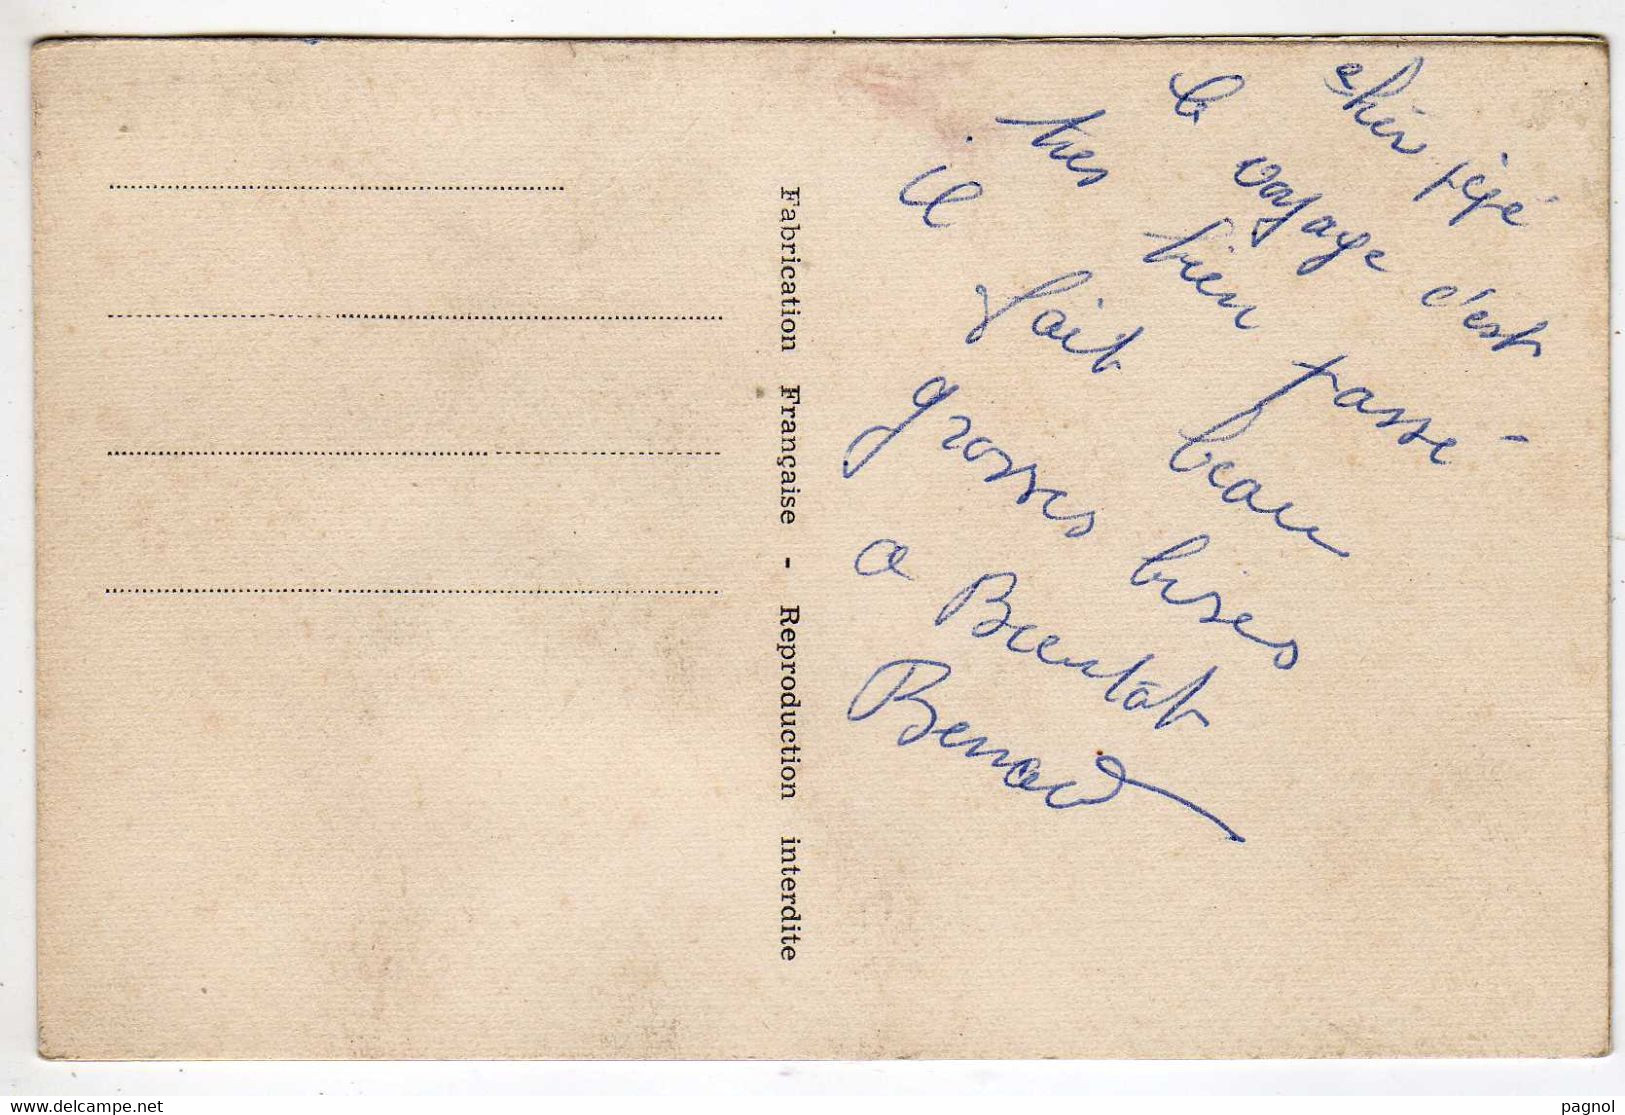 chèr pépé
le voyage c'est
tres bien passé
il fait beau
grosses bises
a Bientôt
Benoid
Fabrication Française - Reproduction interdite
www.delcampe.net
pagnol